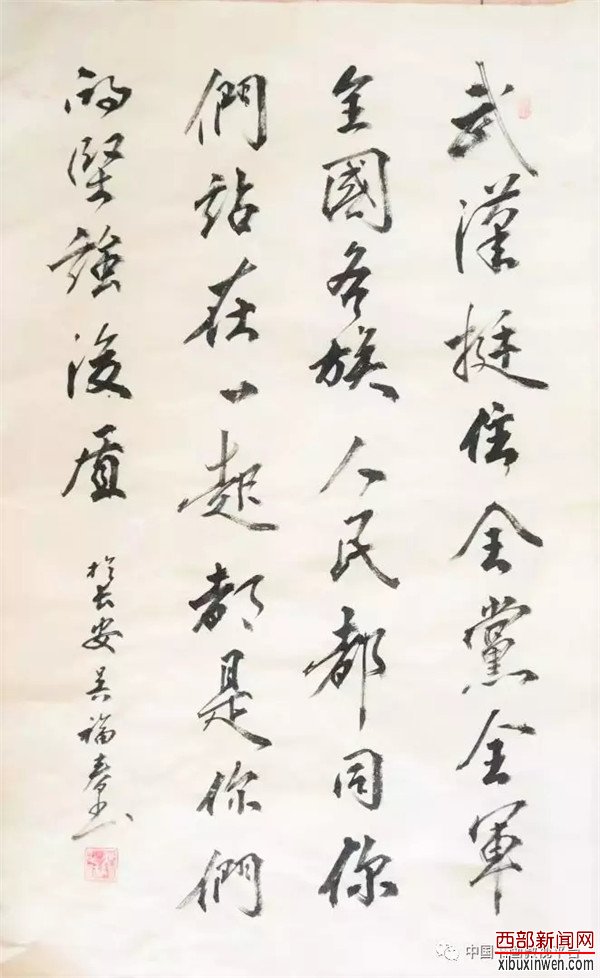 武漢挺住全黨全軍
全國各族人民都同你
們站在一起都是你們
的堅強後盾
於長安吴福春
中国书画
西部新闻网
xibuxinwen.com